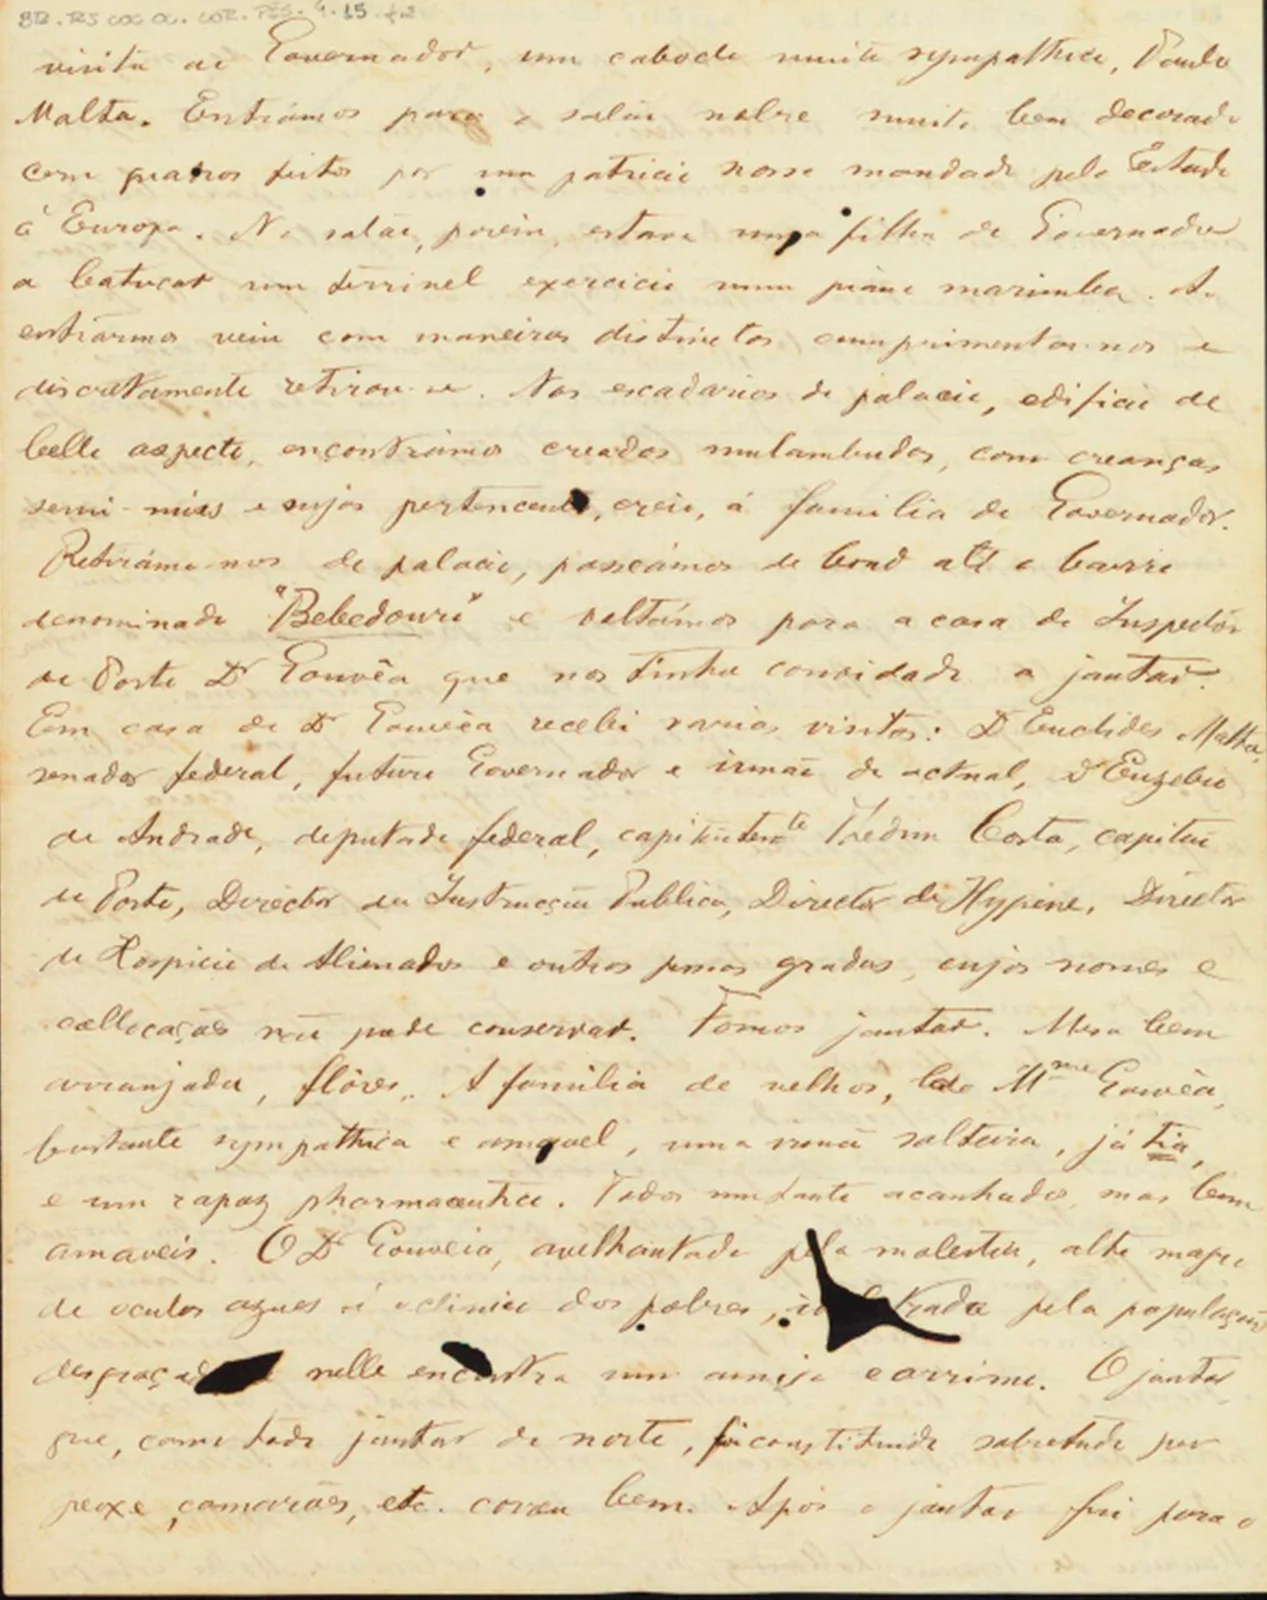 BR. RJ COC OC. COR. PES. 4. 15
visita ao Governador, um caboclo muito sympathico, Paulo
Malta. Entrámos para o salão nobre muito bem decorado
com quadros feitos por um patricio nosso mandado pelo Estado
á Europa. No salão, porém, estava uma filha do Governador
a batucar um terrivel exercicio num piano marimba. Ao
entrarmos veiu com maneiras distinctas cumprimentar-nos e
discretamente retirou-se. Nas escadarias do palacio, edificio de
bello aspecto, encontrámos creados mulambudos, com creanças
semi-núas e sujas pertencentes, creio, á familia do Governador.
Retirámo-nos do palacio, passeámos de bond até o bairro
denominado "Bebedouro" e voltámos para a casa do Inspector
do Porto Dr Gouvêa que nos tinha convidado a jantar.
Em casa do Dr Gouvêa recebi varias visitas: Dr Euclides Malta,
senador federal, futuro Governador e irmão do actual, Dr Euzebio
de Andrade, deputado federal, capitão tente Thedim Costa, capitão
do Porto, Director da Instrucção Publica, Director de Hygiene, Director
do Hospicio de Alienados e outras pessoas gradas, cujos nomes e
collocações não pude conservar. Fomos jantar. Mesa bem
arranjada, flôres. A familia de velhos, Mme Gouvêa,
bastante sympathica e amavel, uma irmã solteira, já tia,
e um rapaz pharmaceutico. Todos um tanto acanhados mas bem
amaveis. O Dr Gouvêa, avelhantado pela molestia, alto magro
de oculos azues é o clinico dos pobres, idolatrado pela população
desgraçada nelle encontra um amigo e arrimo. O jantar
que, como todo jantar do norte, foi constituido sobretudo por
peixe, camarões, etc. correu bem. Após o jantar fui para o